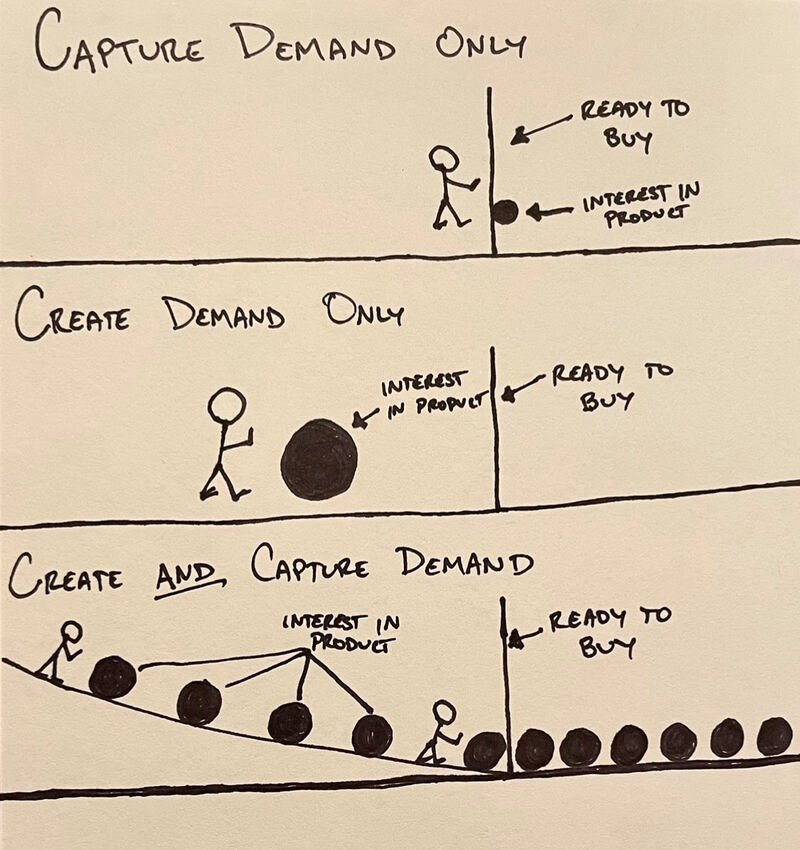 CAPTURE DEMAND ONLY
READY TO
BUY
INTEREST IN
PRODUCT
CREATE DEMAND ONLY
INTEREST
IN PRODUCT
READY TO
BUY
CREATE AND CAPTURE DEMAND
INTEREST IN
PRODUCT
READY TO
BUY